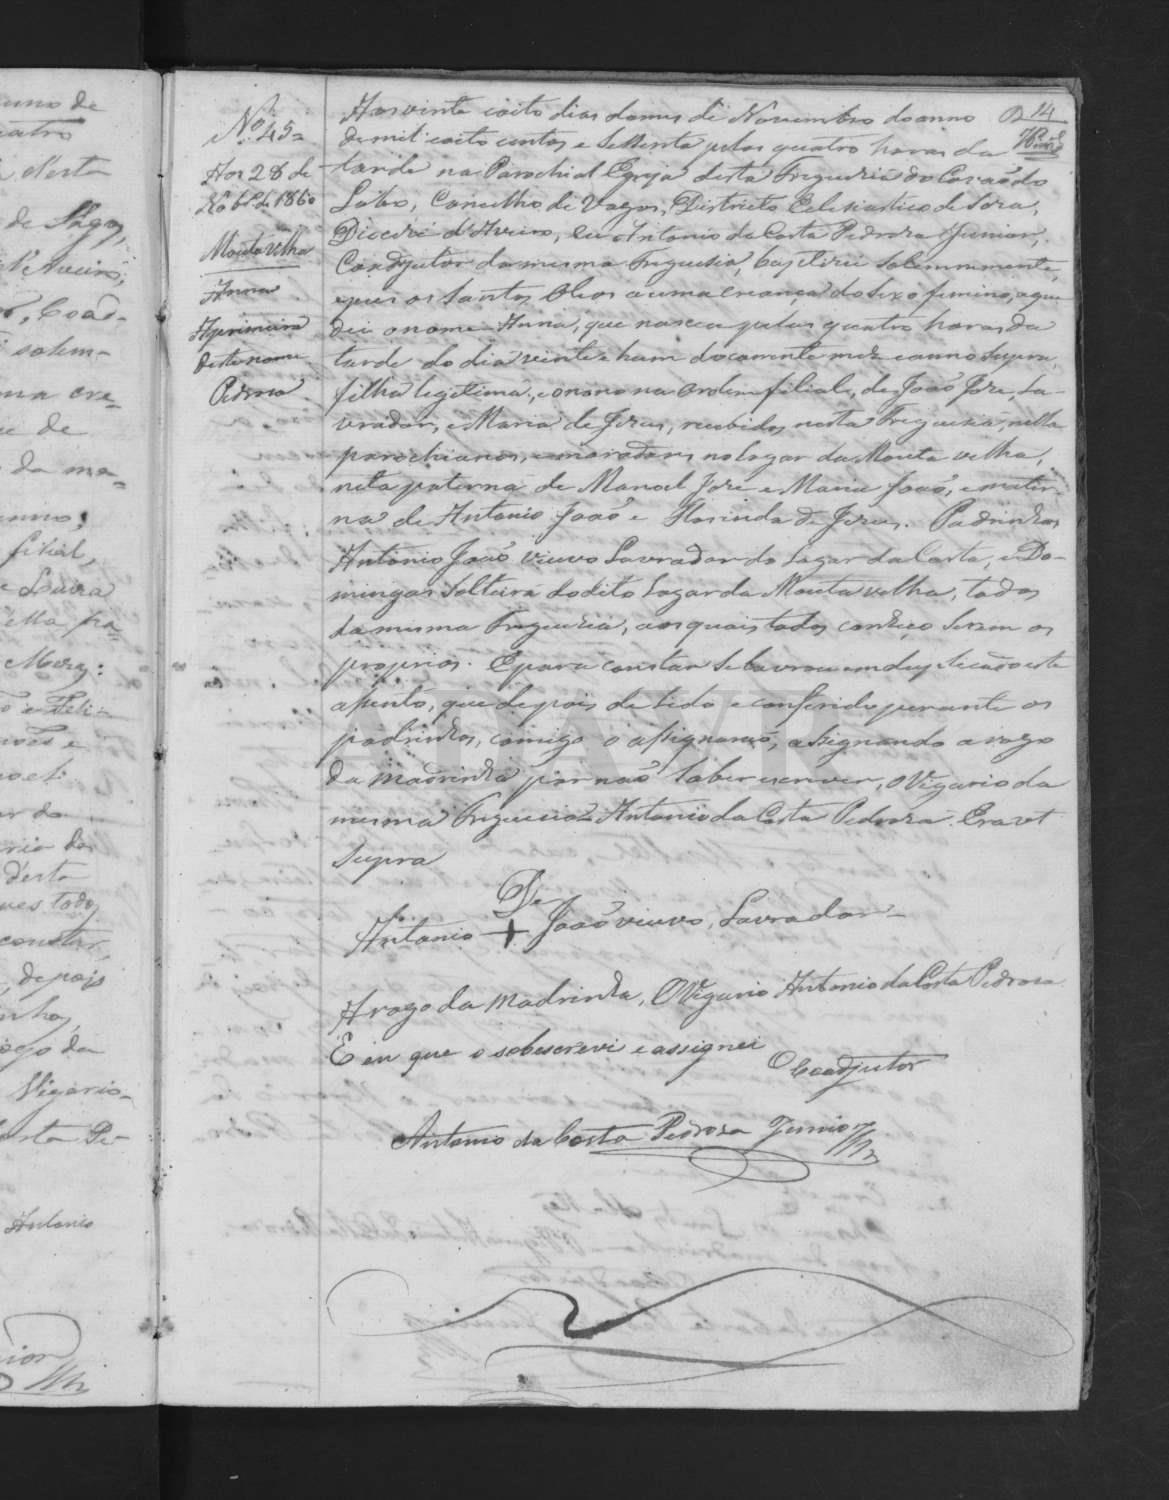 N.º 45=
Aos 28 de
Nobr.º de 1860
Mouta velha
Anna
A primeira
deste nome
Pedrosa
14
Aos vinte e oito dias do mes de Novembro do anno
de mil e oito centos e sessenta pelas quatro horas da
tarde na Parochial Egreja desta Freguezia do Covão do
Lobo, Concelho de Vagos, Districto Eclesiastico de Soza,
Diocese d'Aveiro, eu Antonio da Costa Pedrosa Junior,
Coadjutor da mesma Freguesia, baptisei solemnemente,
e pus os Santos Oleos a uma creança do sexo femino, a que
dei o nome Anna, que nasceu pelas quatro horas da
tarde do dia vinte e hum do corrente mez e anno supra,
filha legitima, e nono na ordem filial, de João José, La-
vrador, e Maria de Jezus, recebidos nesta Freguesia, nella
parochianos, e moradores no logar da Mouta velha,
neta paterna de Manoel José e Maria João, e mater-
na de Antonio João e Florinda de Jezus. Padrinhos
Antonio João viuvo Lavrador do Lugar da Corte, e Do-
mingas Solteira do dito Lugar da Mouta velha, todos
da mesma Freguezia, aos quais todos conheço serem os
proprios. E para constar se lavrou em duplicado este
assento, que depois de lido e conferido perante os
padrinhos, comigo o assignarão, assignando a rogo
da madrinha por não saber escrever, o Vigario da
mesma Freguezia Antonio da Costa Pedrosa. Era ut
supra
De
Antonio + João viuvo, Lavrador=
A rogo da Madrinha, O Vigario Antonio da Costa Pedrosa
E eu que o sobescrevi e assignei
O Coadjutor
Antonio da Costa Pedrosa Junior
uno de
desta
de Vagos,
d'Aveiro,
Coad-
solem-
ma cre-
de
da ma-
anno,
filial,
Louza
ella pa-
e
desta
todos
constar,
depois
rogo da
Vigario
Costa Pe-
Antonio
ADAVR